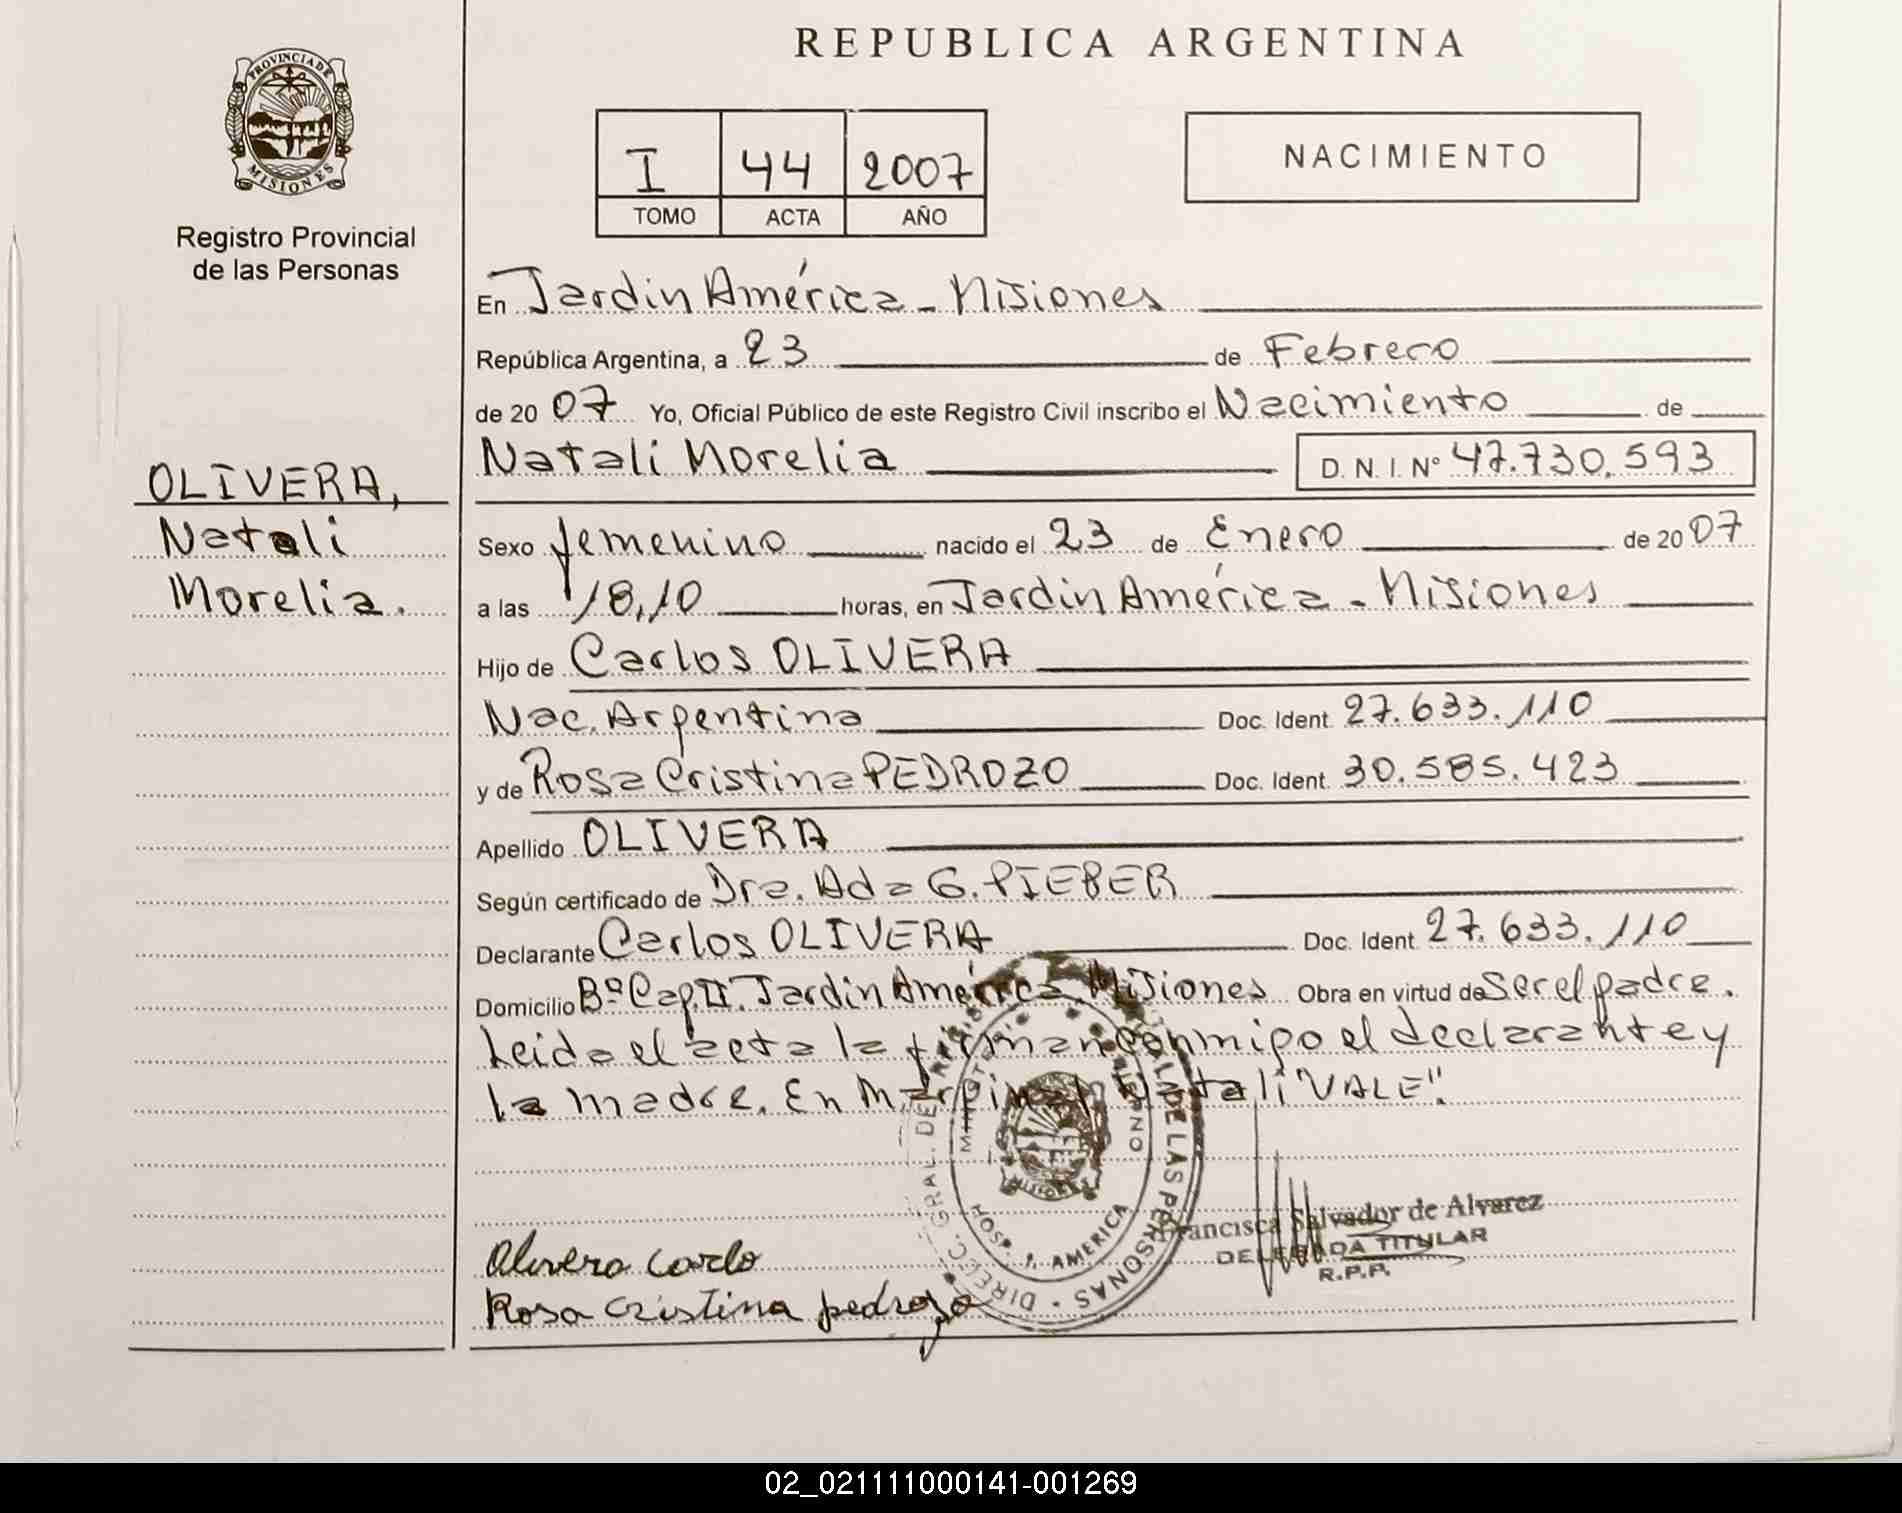 REPUBLICA ARGENTINA
PROVINCIA DE
MISIONES
Registro Provincial
de las Personas
I 44 2007
TOMO ACTA AÑO
NACIMIENTO
OLIVERA,
Natali
Morelia.
En Jardin América - Misiones
República Argentina, a 23 de Febrero
de 2007 Yo, Oficial Público de este Registro Civil inscribo el Nacimiento de
Natali Morelia D. N. I. Nº 47.730.593
Sexo femenino nacido el 23 de Enero de 2007
a las 18,10 horas, en Jardin América - Misiones
Hijo de Carlos OLIVERA
Nac. Argentina Doc. Ident. 27.633.110
y de Rosa Cristina PEDROZO Doc. Ident. 30.585.423
Apellido OLIVERA
Según certificado de Dra. Ada G. PIEBER
Declarante Carlos OLIVERA Doc. Ident. 27.633.110
Domicilio Bº Cap. II. Jardin América Misiones Obra en virtud de ser el padre.
Leida el acta la firman conmigo el declarante y
la madre. En Marginal Natali "VALE".
DIREC. GRAL. DE DE LAS PERSONAS
HOSP. J. AMERICA
MISIONES
Francisca Salvador de Alvarez
DELEGADA TITULAR
R.P.P.
Olivera Carlo
Rosa Cristina pedrozo
02_021111000141-001269